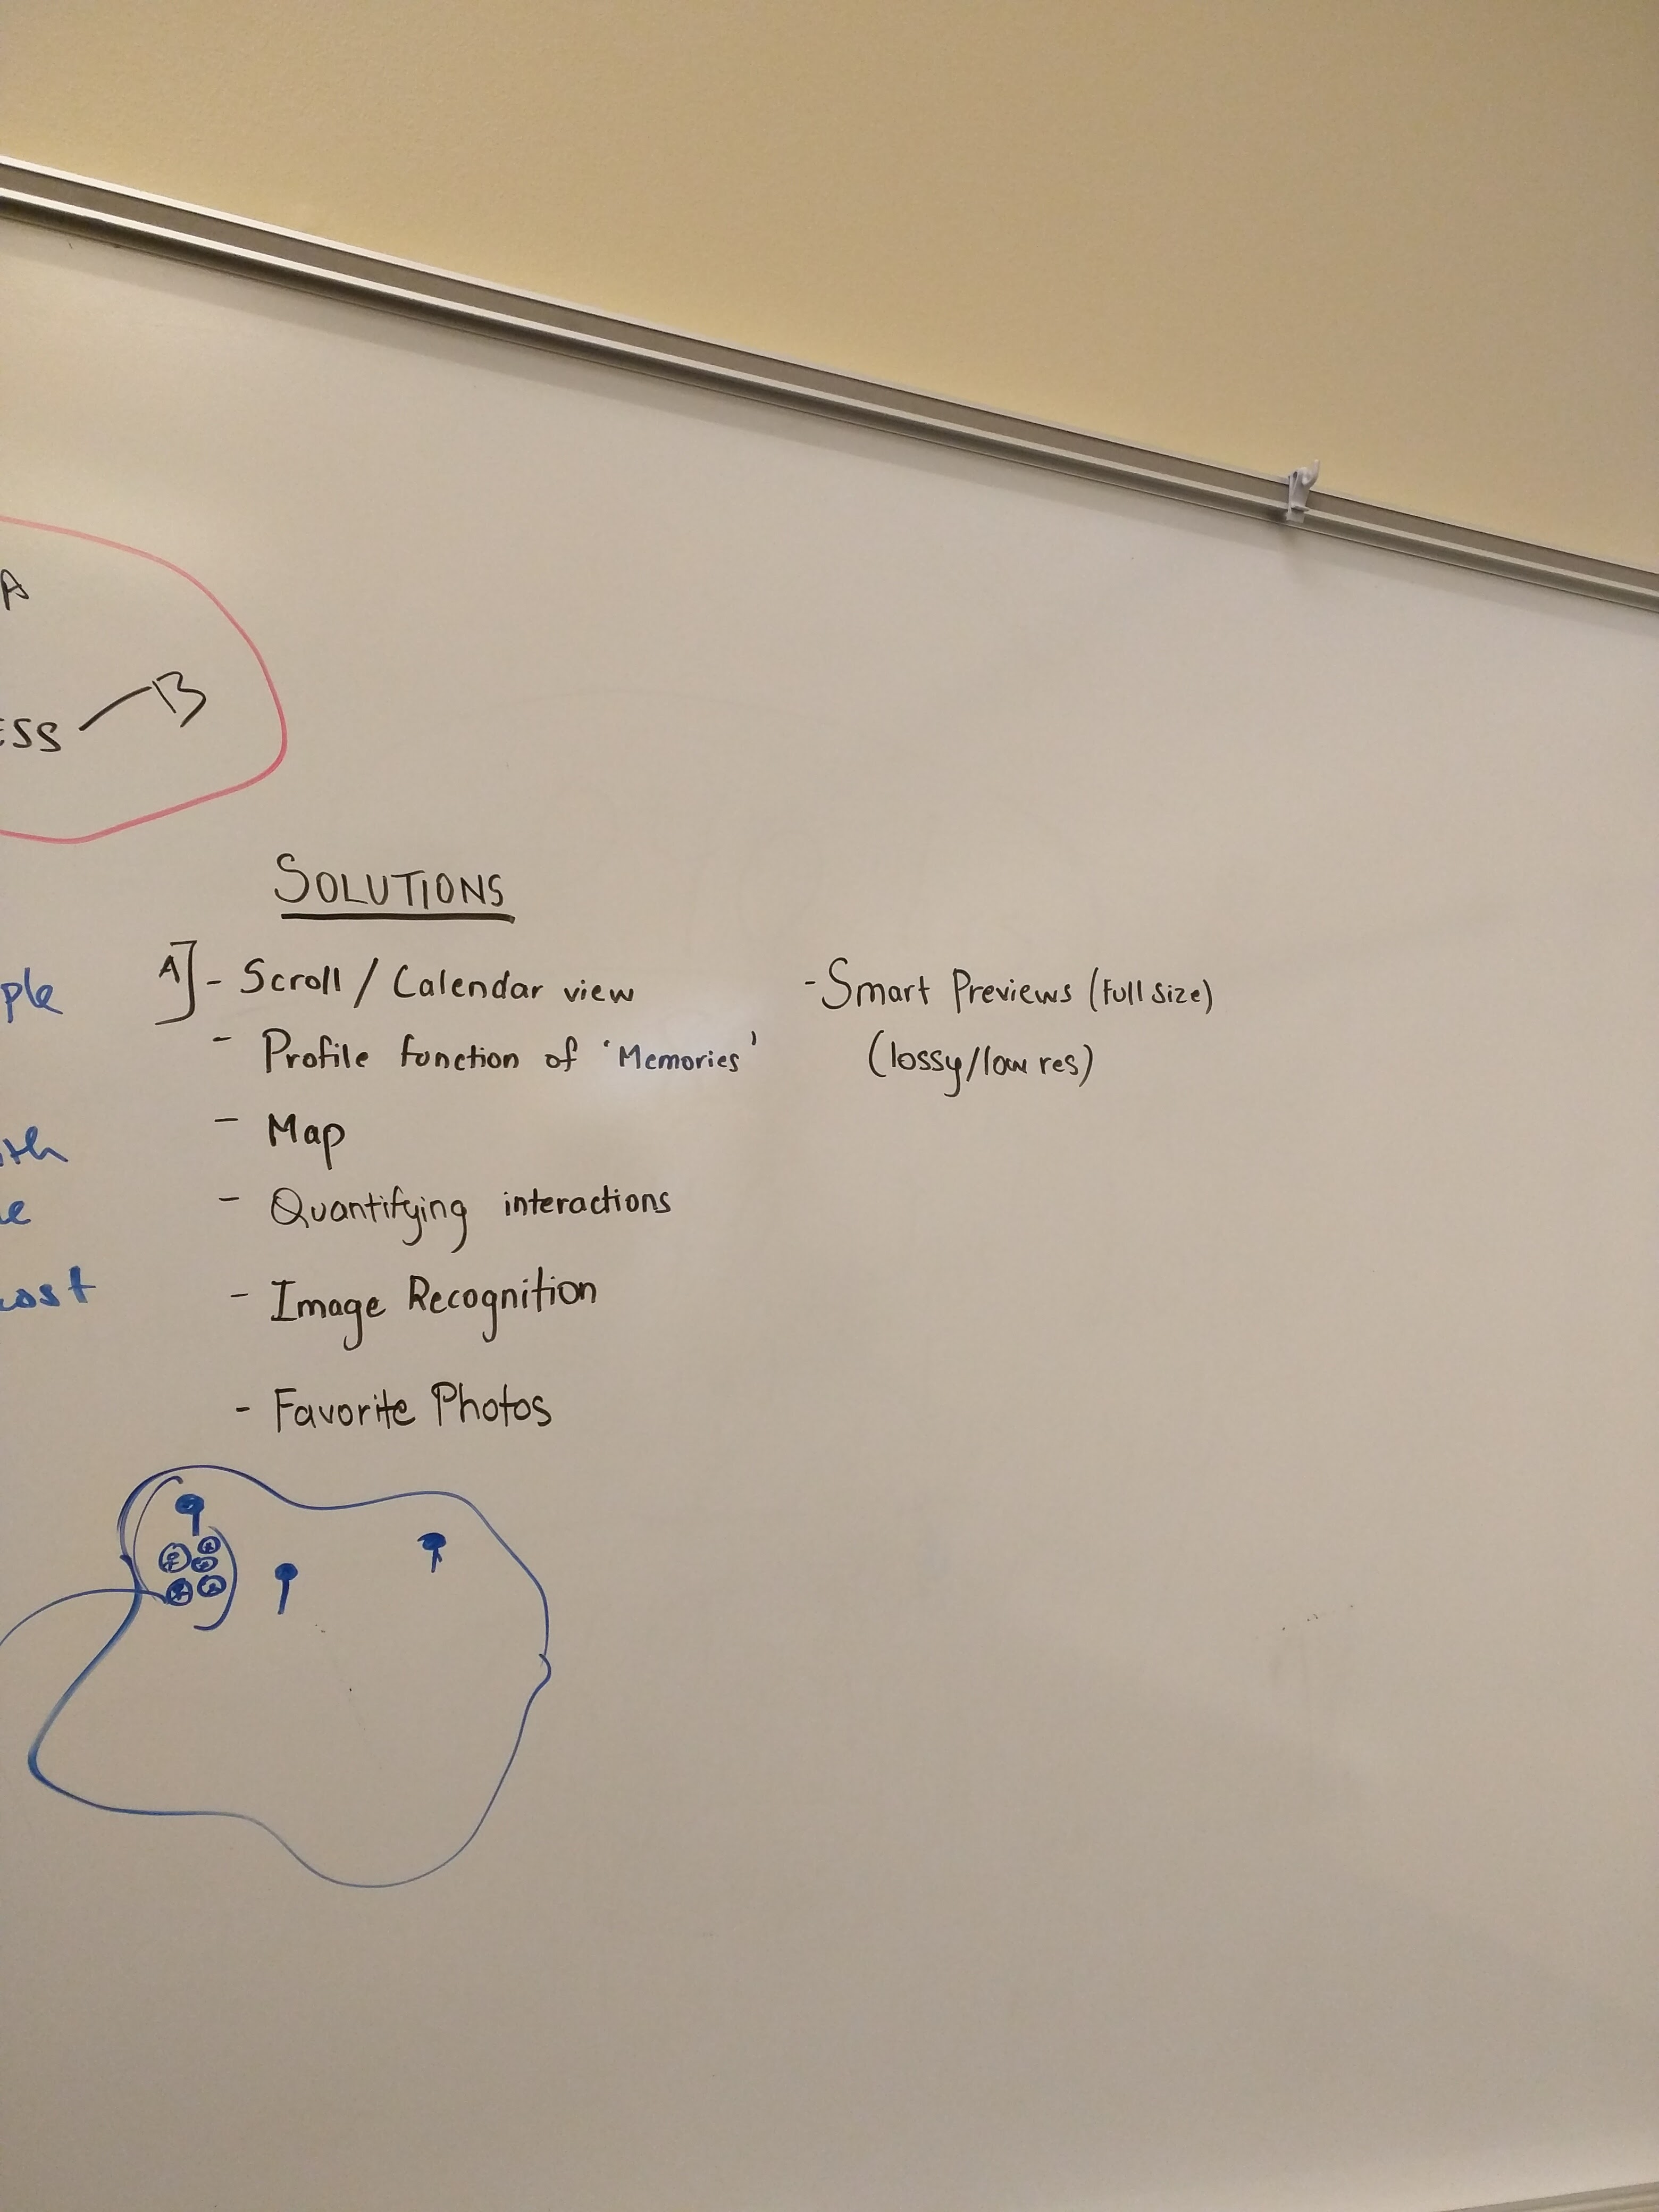 A
ESS — B
SOLUTIONS
A] - Scroll / Calendar view
- Profile function of 'Memories'
- Map
- Quantifying interactions
- Image Recognition
- Favorite Photos
- Smart Previews (Full Size)
(lossy/low res)
ple
ith
e
cost